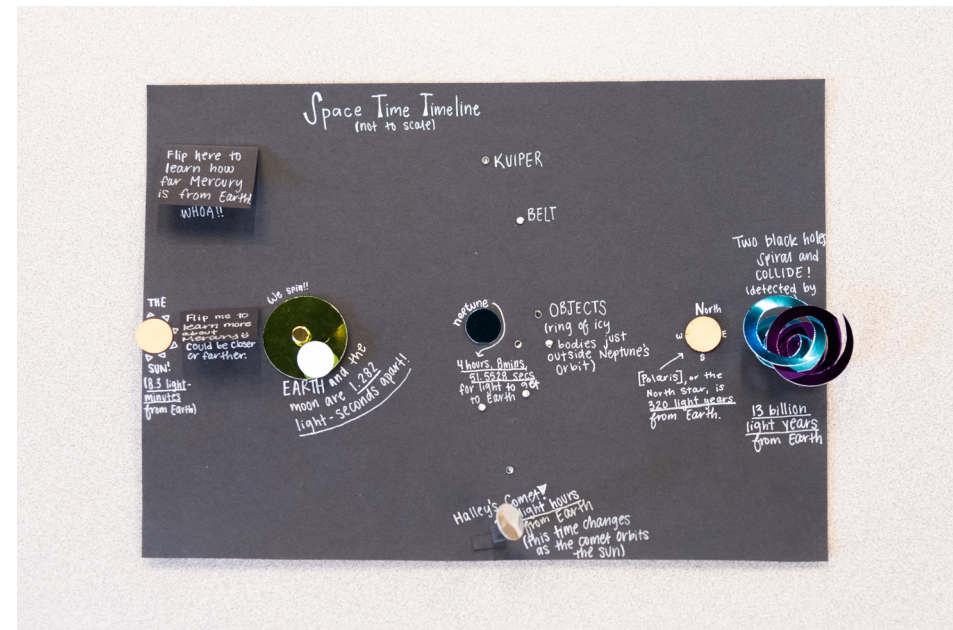 Space Time Timeline
(not to scale)
Flip here to
learn how
far Mercury
is from Earth!
WHOA!!
KUIPER
BELT
OBJECTS
(ring of icy
bodies just
outside Neptune's
orbit)
THE
SUN!
(8.3 light-
minutes
from Earth)
Flip me to
learn more
about
Mercury
could be closer
or farther.
We spin!!
EARTH and the
moon are 1.282
light-seconds apart!!
neptune
4 hours, 8 mins,
51.5528 secs
for light to get
to Earth
North
W E
S
[Polaris], or the
North Star, is
320 light years
from Earth.
Two black holes
spiral and
COLLIDE!
(detected by
13 billion
light years
from Earth
Halley's Comet
light hours
from Earth
(this time changes
as the comet orbits
the sun)